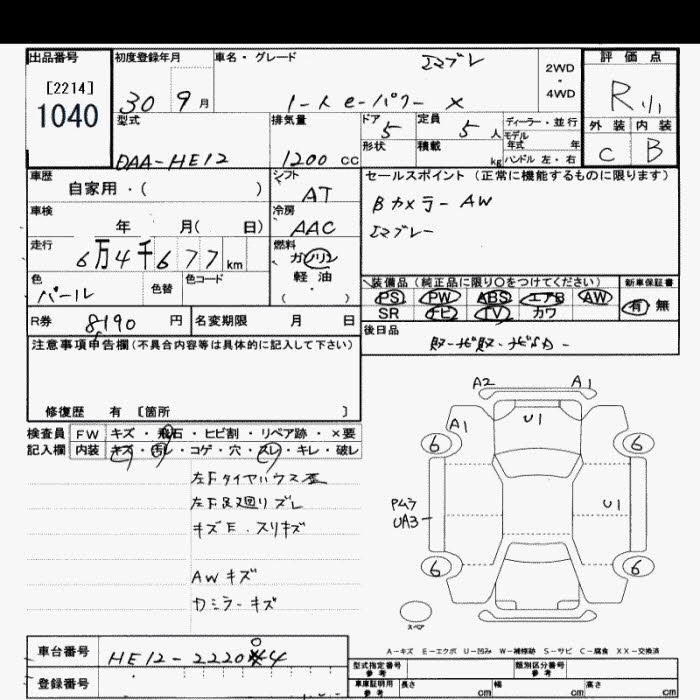 出品番号 初度登録年月 車名・グレード エマブレ 2WD・4WD 評価点
[2214]
1040
30 9月 ノート e-パワー X R
型式 排気量 ドア 5 定員 5人 ディーラー・並行 外装 内装
モデル年式 年
DAA-HE12 1200cc 形状 積載 kg ハンドル 左・右 C B
車歴 シフト セールスポイント (正常に機能するものに限ります)
自家用・( ) AT Bカメラー AW
車検 冷房
年 月( 日) AAC エマブレー
走行 燃料
6万4千677km ガソリン
軽・油
( ・ )
色 パール 色替 色コード 装備品 (純正品に限り〇をつけてください) 新車保証書
PS PW ABS エアB AW 有 無
SR ナビ TV カワ
R券 8,190円 名変期限 月 日 後日品
取-ナビ取-
注意事項申告欄(不具合内容等は具体的に記入して下さい)
修復歴 有 [箇所 ]
A2 A1
検査員 FW キズ・飛石・ヒビ割・リペア跡・×要
記入欄 内装 キズ・汚レ・コゲ・穴・スレ・キレ・破レ
A1 U1
6 6
左Fタイヤハウス歪
左F足廻りズレ
キズE.スリキズ
U1
UA3
6 6
AWキズ
カミラーキズ
スペア
A-キズ E-エクボ U-凹み W-補修跡 S-サビ C-腐食 XX-交換済
車台番号 HE12-2220 0 4
登録番号
型式指定番号 参考 類別区分番号 参考
車庫証明用 参考 長さ cm 幅 cm 高さ cm